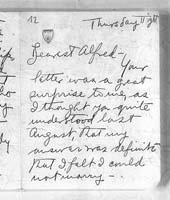 12
Thursday night
Dearest Alfred –
Your
letter was a great
surprise to me, as
I thought you quite
understood last
August that my
answer was definite
that I felt I could
not marry –.